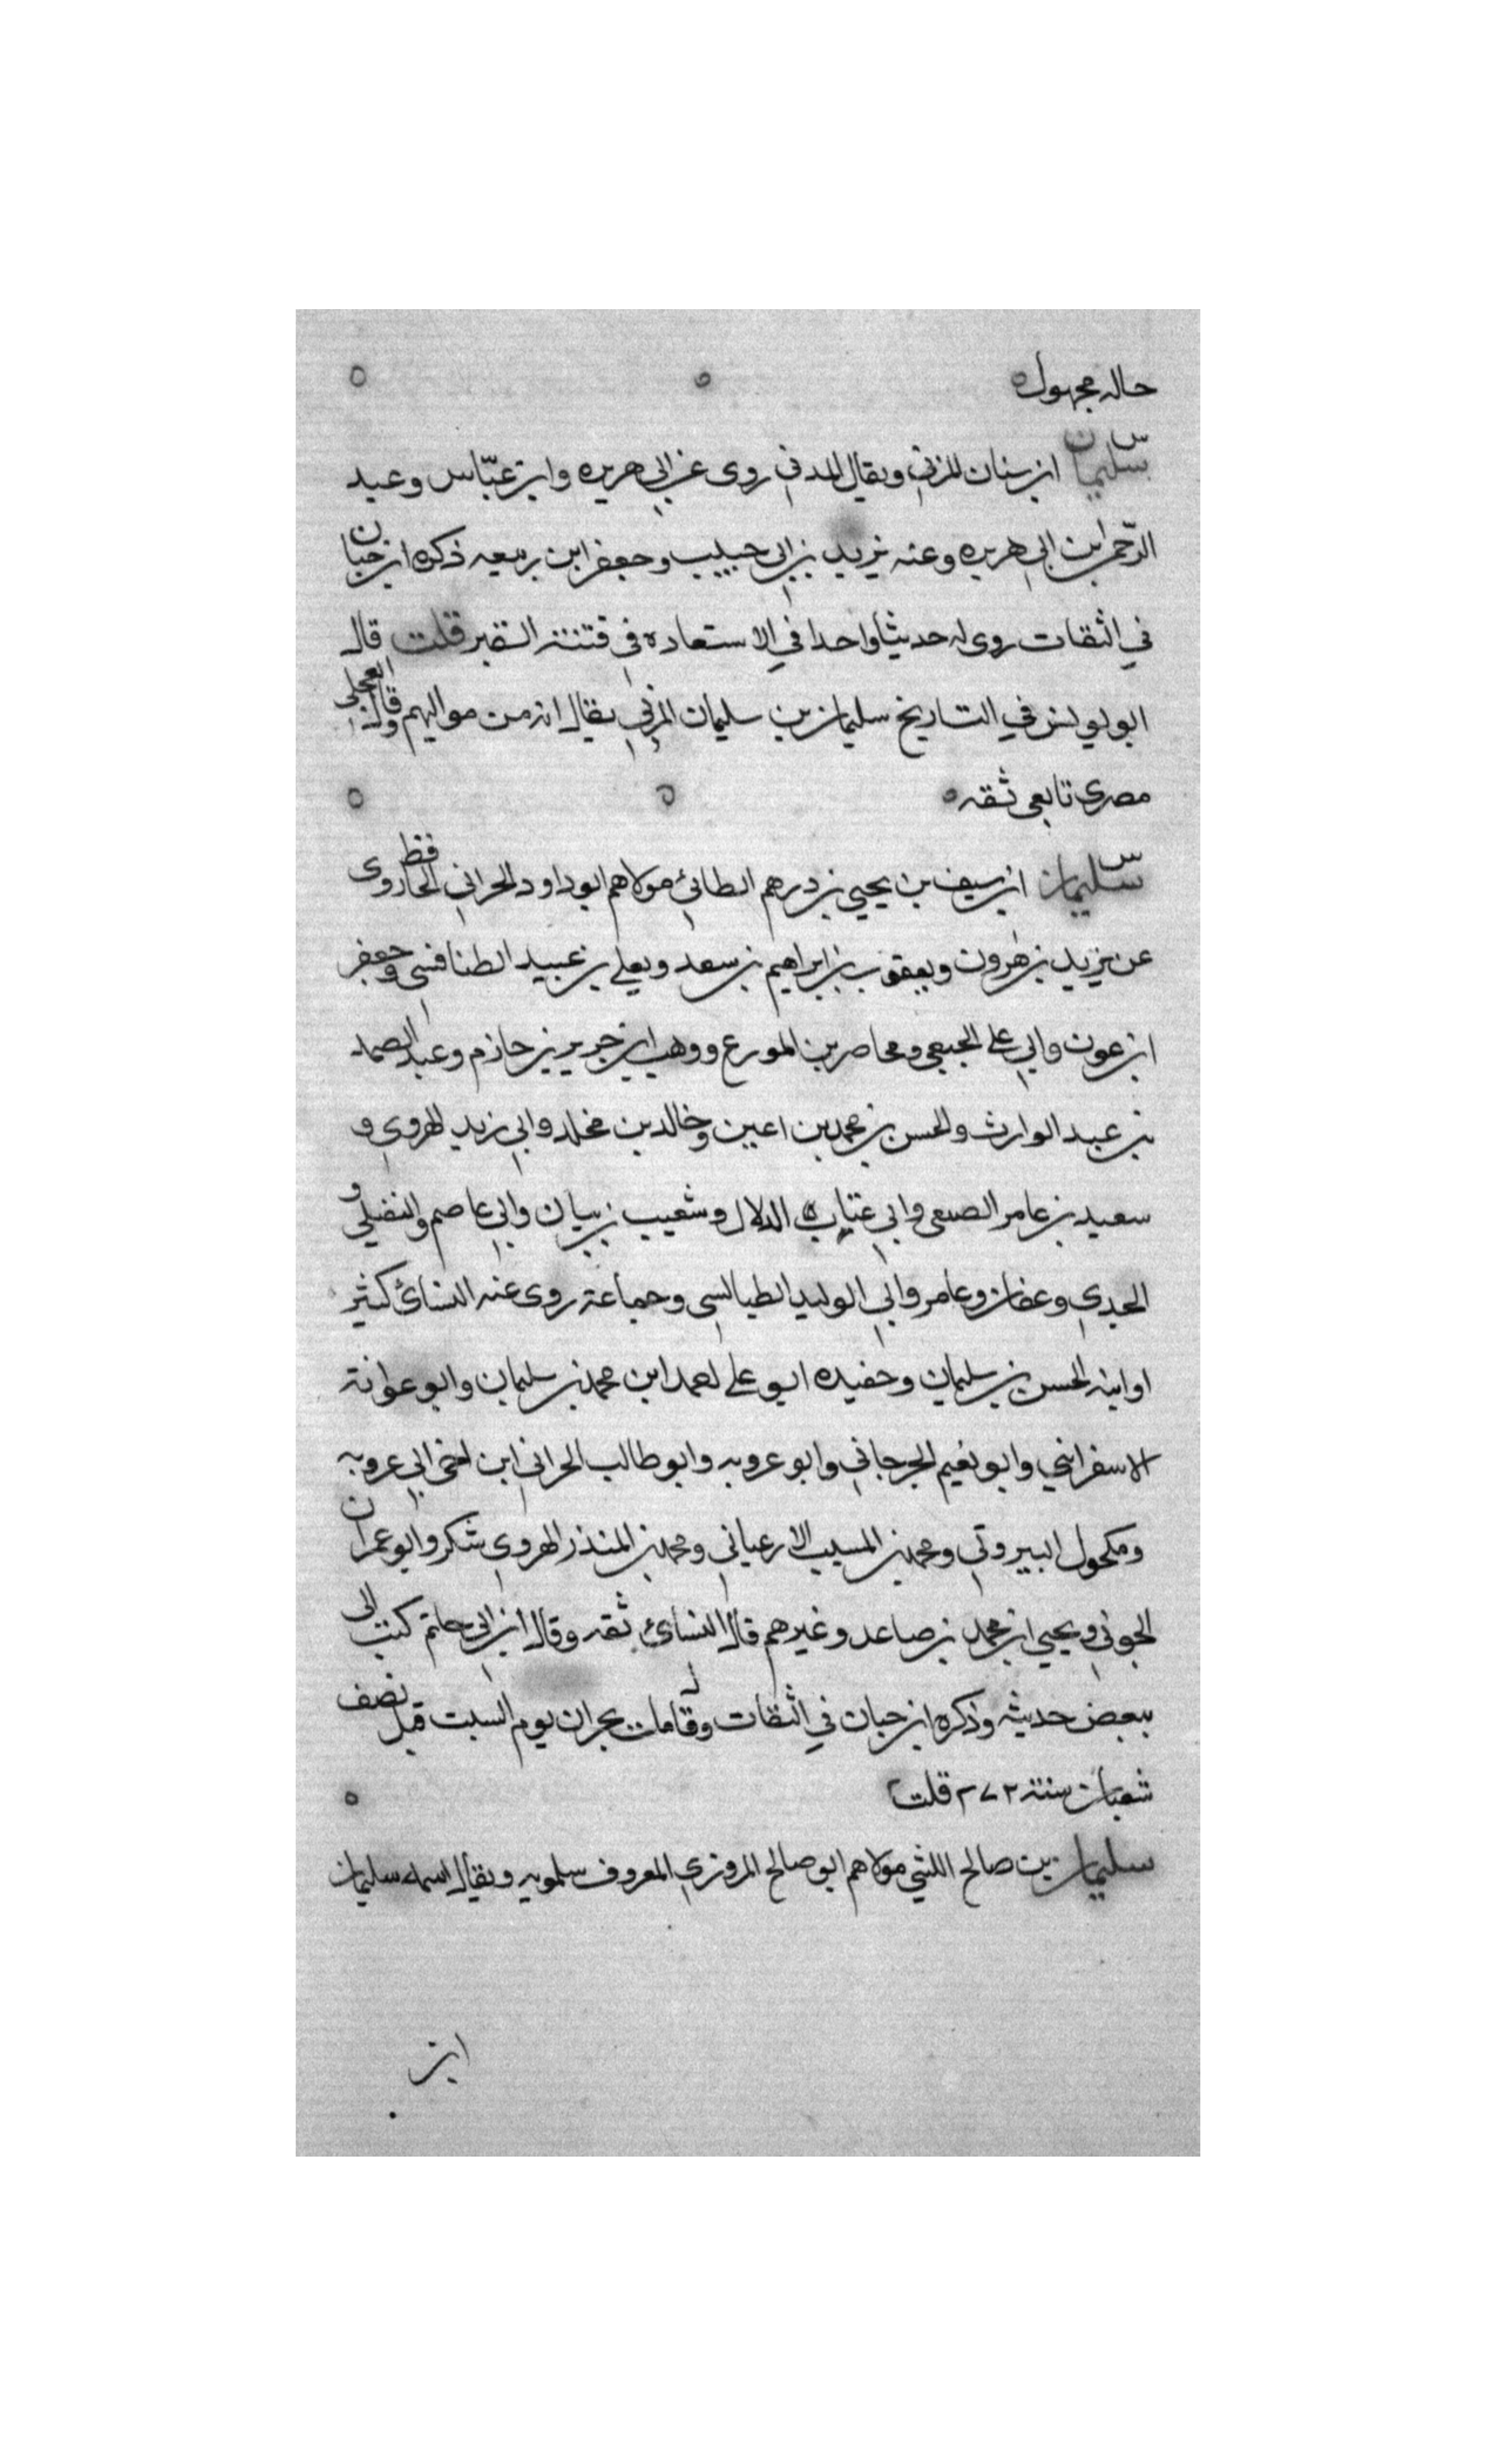 حاله مجهول
س
سليمان ابن سنان المزني ويقال المدني روى عن ابي هريره وابن عبّاس وعبد
الرّحمن ابن ابي هريره وعنه يزيد بن ابي حبيب وجعفر ابن ربيعه ذكره ابن حبان
في الثقات روى له حديثا واحدا في الاستعاده في فتنة القبر قلت قال
ابو يونس في التاريخ سليمان بن سليمان المزني يقال انه من مواليهم وقال العجلي
مصري تابعي ثقه
س
سليمان ابن سيف بن يحيي بن درهم الطائي مولاهم ابو داود الحراني الحافظ روى
عن يزيد بن هرون ويعقوب بن ابراهيم بن سعد ويعلي بن عبيد الطنافسي وجعفر
ابن عون وابي علي الجبعي ومحاصر بن المورع ووهب ابن جرير بن حازم وعبد الصمد
بن عبد الوارث والحسن بن محمد بن اعين وخالد بن مخلد وابي زيد الهروي و
سعيد بن عامر الصبعي وابي عتاب الدلال وشعيب بن بيان وابي عاصم والنفيلي و
الحدي وعفان وعامر وابي الوليد الطيالسي وجماعة روى عنه النسائي كثير
ا وابنه الحسن بن سليمان وحفيده ابو علي احمد ابن محمد بن سليمان وابو عوانة
الاسفرايني وابو نعيم الجرجاني وابو عروبه وابو طالب الحراني ابن اخي ابي عروبه
ومكحول البيروتي ومحمد بن المسيب الارعياني ومحمد بن المنذر الهروي شكر وابو عمران
الجوني ويحيي ابن محمد بن صاعد وغيرهم قال النسائي ثقه وقال ابن ابي حاتم كتب الى
ببعض حديثه وذكره ابن حبان في الثقات وقال مات بحران يوم السبت قبل نصف
شعبان سنة ٢٧٢ قلت
سليمان بن صالح الليثي مولاهم ابو صالح المروزي المعروف سلمويه ويقال اسمه سليمان
ابن